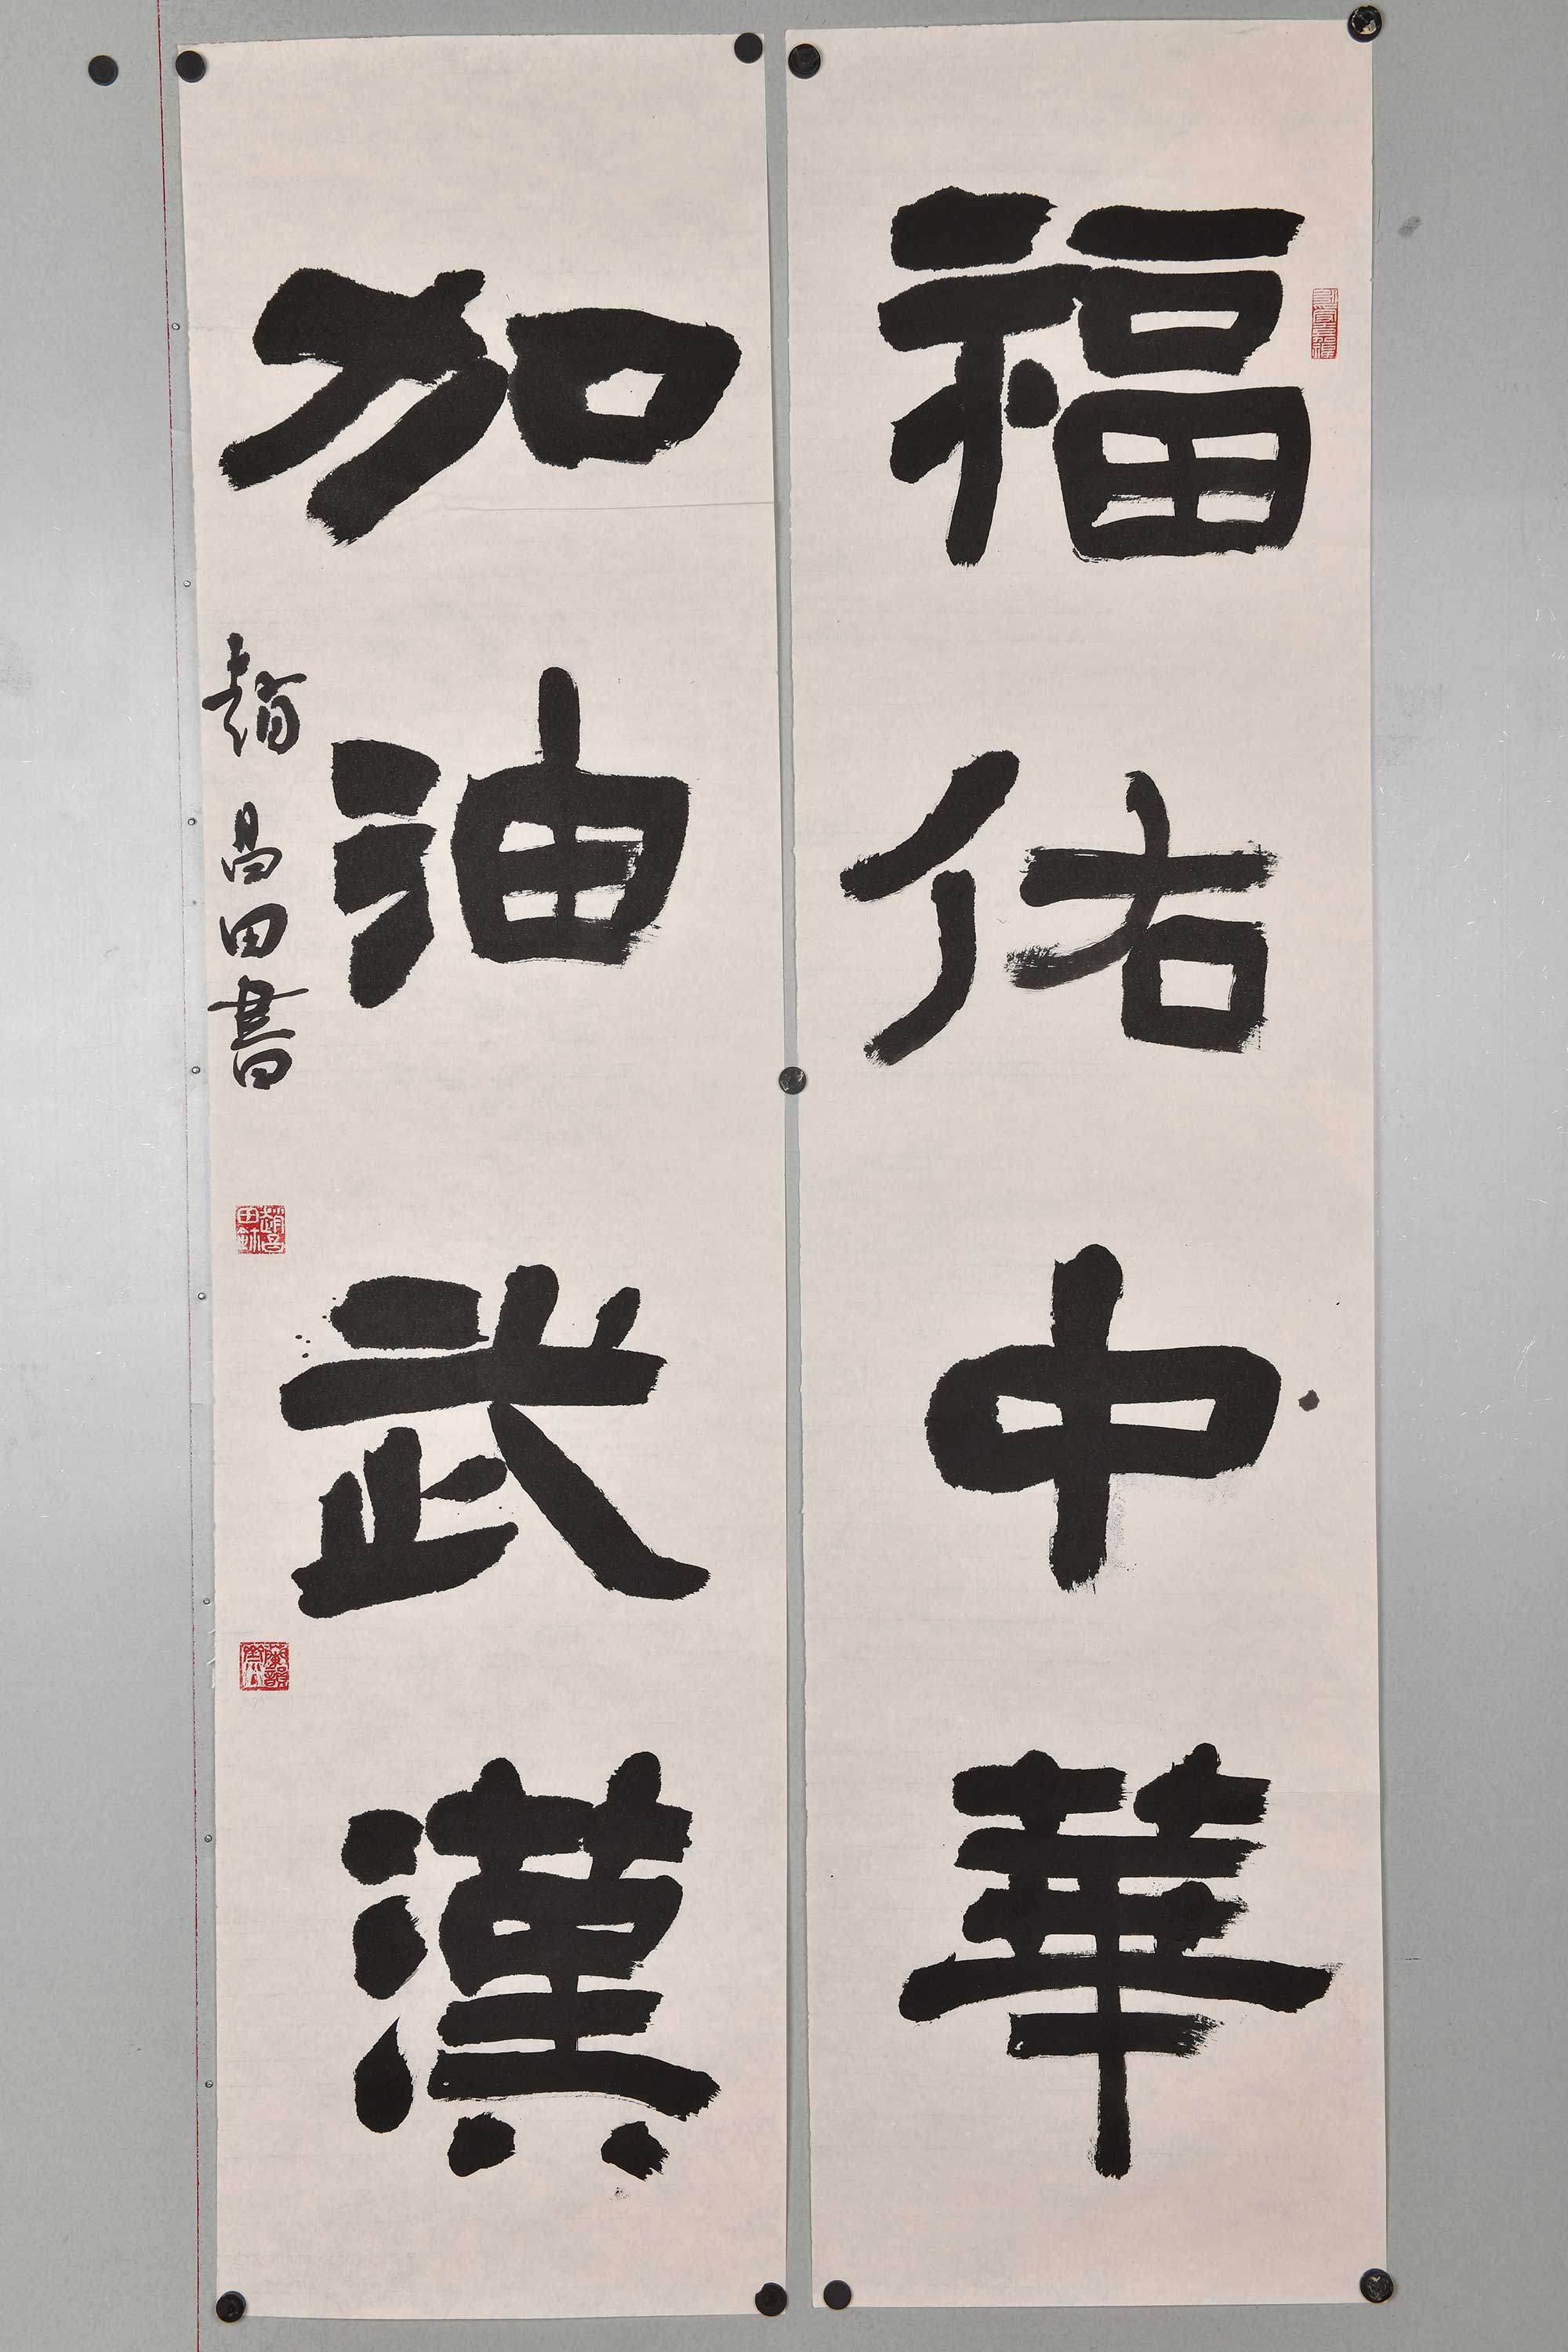 福佑中華
加油武漢
趙昌田書